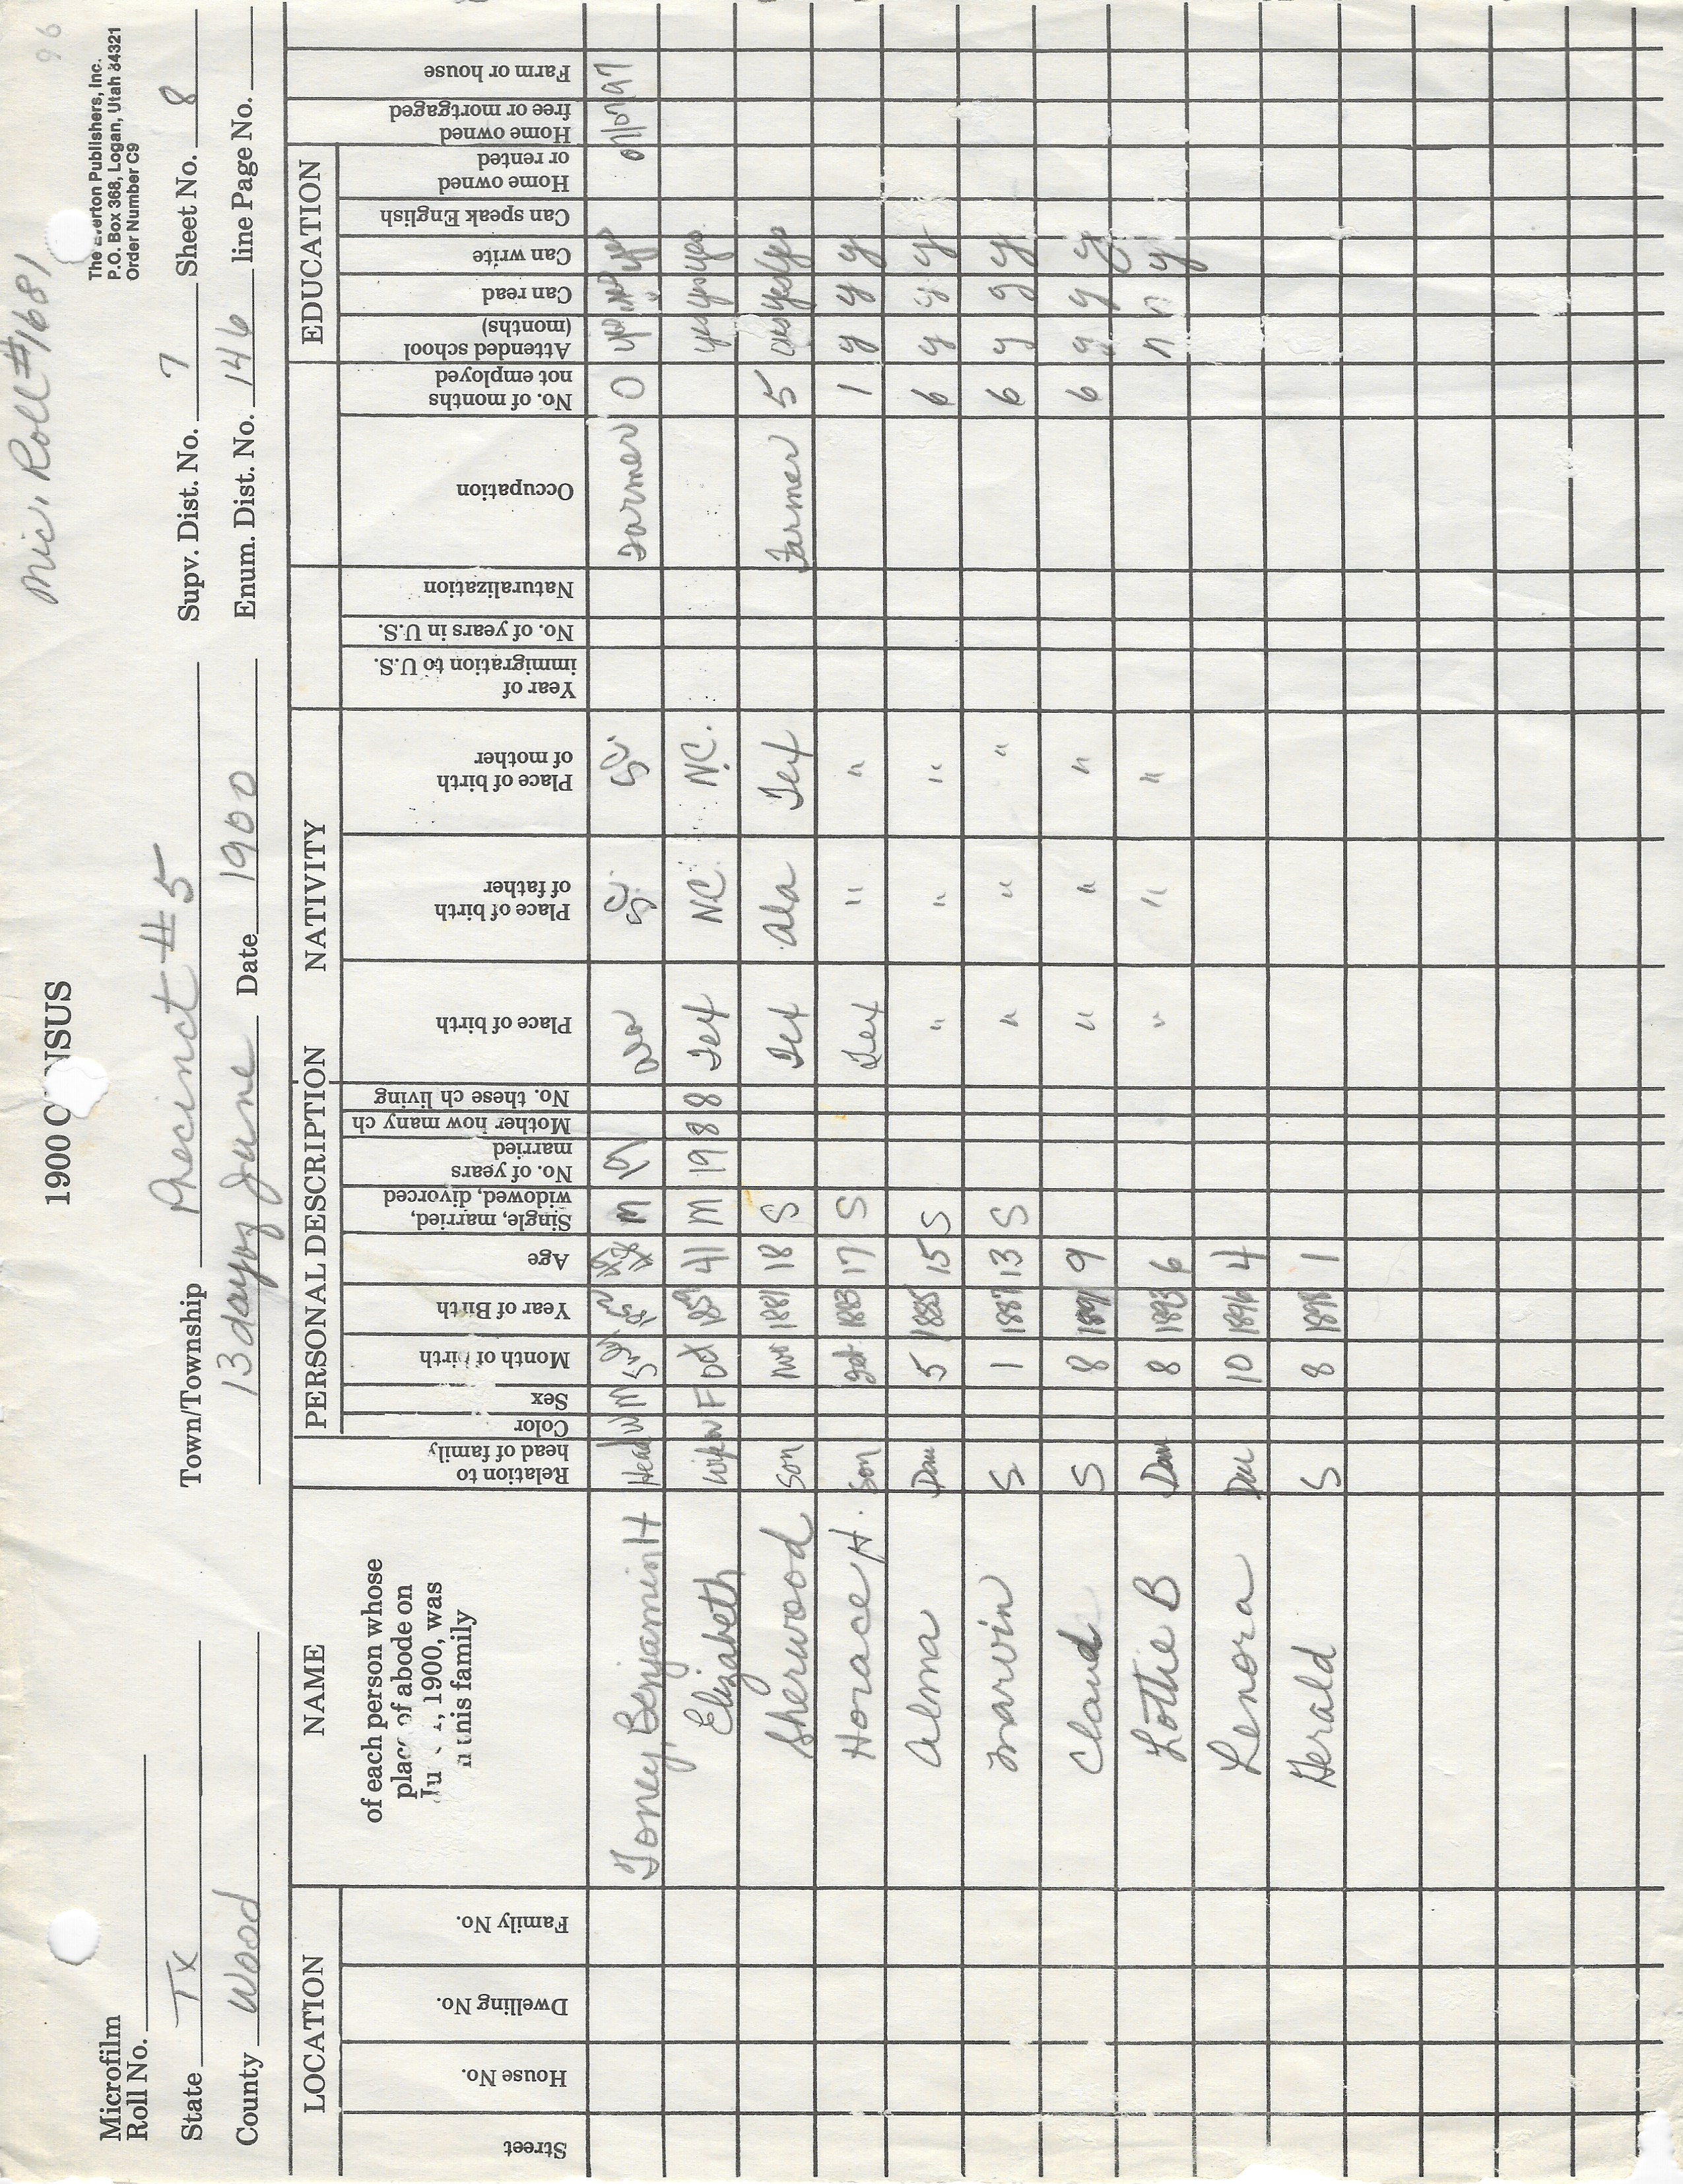 96
Mic. Roll #1681
1900 C NSUS
The Everton Publishers, Inc.
P.O. Box 368, Logan, Utah 84321
Order Number C9
Microfilm
Roll No.
State TX Town/Township Precinct #5 Supv. Dist. No. 7 Sheet No. 8
County Wood 13 day of June Date 1900 Enum. Dist. No. 146 line Page No.
LOCATION NAME PERSONAL DESCRIPTION NATIVITY EDUCATION
Street
House No.
Dwelling No.
Family No.
of each person whose
place of abode on
Ju 1, 1900, was
n this family
Relation to
head of family
Color
Sex
Month of birth
Year of Birth
Age
Single, married,
widowed, divorced
No. of years
married
Mother how many ch
No. these ch living
Place of birth
Place of birth
of father
Place of birth
of mother
Year of
immigration to U.S.
No. of years in U.S.
Naturalization
Occupation
No. of months
not employed
Attended school
(months)
Can read
Can write
Can speak English
Home owned
or rented
Home owned
free or mortgaged
Farm or house
Toney, Benjamin H Head W M M 19 SC SC Farmer 0 yes
Elizabeth Wife W F Oct 1859 41 M 19 8 8 Tex NC NC. yes yes yes
Sherwood Son Nov 1881 18 S Tex Ala Tex Farmer 5 yes yes yes
Horace H. Son 1883 17 S Tex " " 1 y y y
Alma Dau 5 1885 15 S " " " 6 y y y
Marvin S 1 1887 13 S " " " 6 y y y
Claud S 8 1891 9 " " " 6 y y y
Lottie B Dau 8 1893 6 " " " n n y
Lenora Dau 10 1896 4
Herald S 8 1898 1